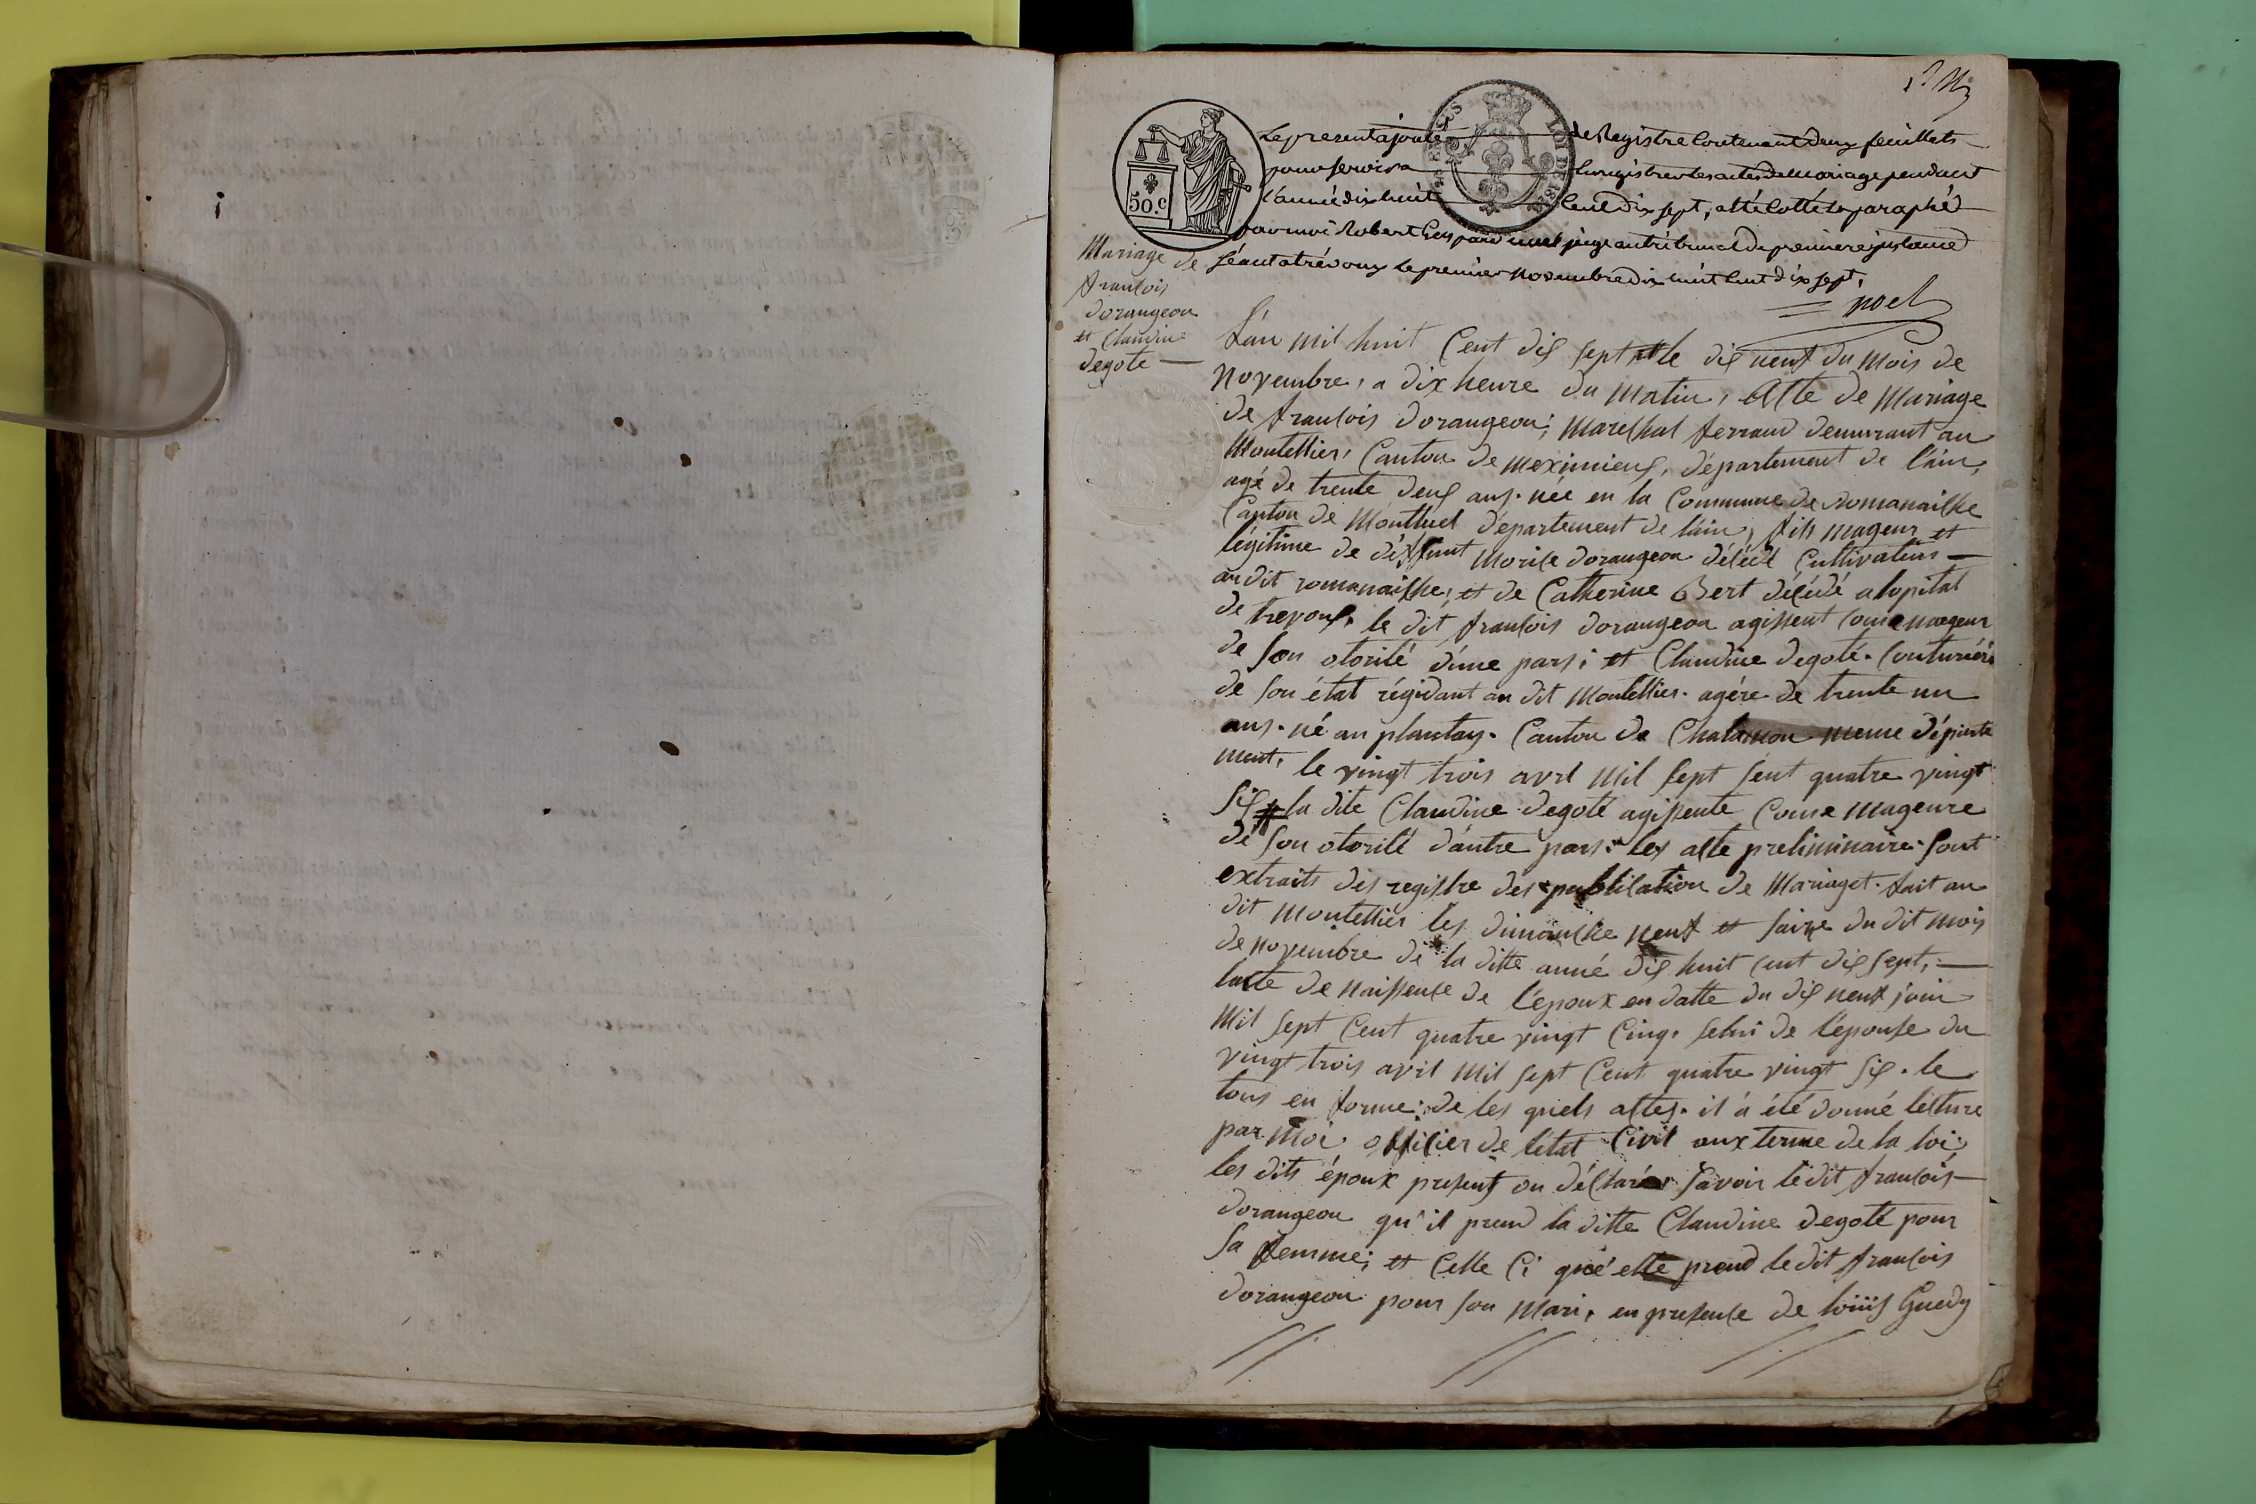 Le present ajouté de Registre Contenant deux feuillets
pour servir a Enregistrer les actes de mariage pendant
l'année dix huit Cent dix sept, a été Cotté & paraphé
par moi Robert noel juge au tribunal de premiere instance
séant a trévoux le premier novembre dix huit Cent dix sept.
noel
50.c
LOI DE 18
Mariage de
francois
dorangeon
et Claudine
degote —
L'an mil huit Cent dix sept et le dix neuf du mois de
novembre, a dix heure du matin, Acte de Mariage
de francois dorangeon; marechal ferrand demurant au
Montellier, Canton de meximieux, département de l'ain,
agé de trente deux ans. née en la Commune de romanaiche
Canton de Montluel département de l'ain, fils mageur et
légitime de déffunt Morice dorangeon décédé Cultivateur —
au dit romanaiche, et de Catherine Bert décédé a lopital
de trevoux, le dit francois dorangeon agissent Come mageur
de son otorité d'une pars; et Claudine degoté. Couturiére
de son état régidant au dit Montellier. agére de trente un
ans. né au plantay. Canton de Chalamon meme départe
ment, le vingt trois avril mil sept sent quatre vingt
six la dite Claudine degoté agissente Come mageure
de son otorité d'autre pars. les acte preliminaire sont
extraits des registre des publication de Mariaget. fait au
dit montellier les dimanche neuf et saize du dit mois
de novembre de la ditte année dix huit cent dix sept, —
lacte de naissence de l'epoux en datte du dix neuf juin
mil sept Cent quatre vingt Cinq. selui de l'épouse du
vingt trois avril mil sept Cent quatre vingt six. le
tous en forme: de les quels actes. il a été donné lecture
par moi officier de létat Civil aux terme de la loi;
les dits époux present on déclarér savoir ledit francois —
dorangeon qu'il prend la ditte Claudine degoté pour
sa femme; et Celle Ci qué elle prend le dit francois
dorangeon pour son mari, en presence de loüis Guedy